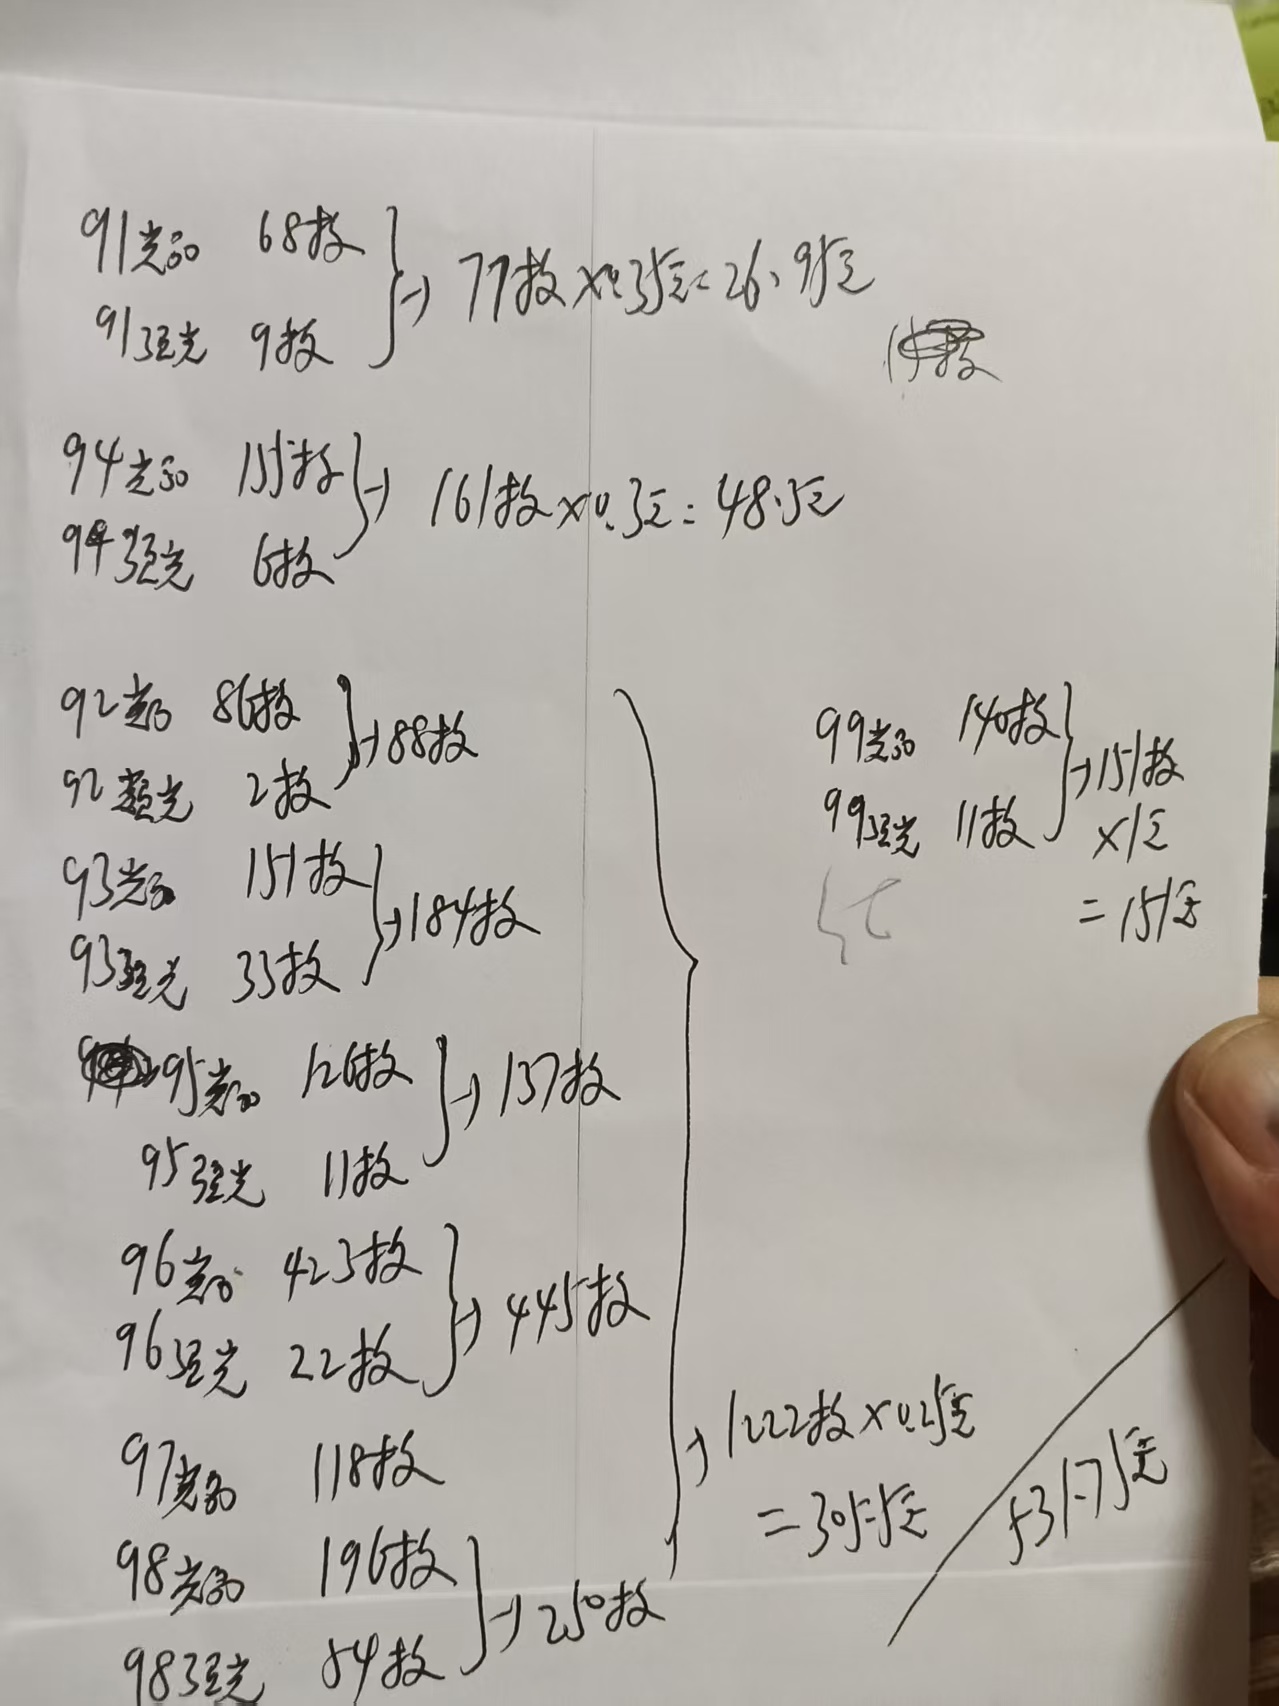 91光边 68枚
91强光 9枚
77枚×0.35元=26.95元
94光边 155枚
94强光 6枚
161枚×0.3元=48.3元
92光边 86枚
92强光 2枚
88枚
93光边 151枚
93强光 33枚
184枚
95光边 126枚
95强光 11枚
137枚
96光边 423枚
96强光 22枚
445枚
97光边 118枚
98光边 196枚
98强光 54枚
250枚
1222枚×0.25元
=305.5元
99光边 140枚
99强光 11枚
151枚
×1元
=151元
531.75元